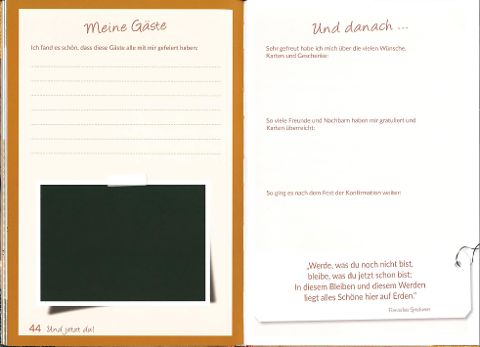 Meine Gäste
Ich fand es schön, dass diese Gäste alle mit mir gefeiert haben:
44 Und jetzt du!
Und danach ...
Sehr gefreut habe ich mich über die vielen Wünsche,
Karten und Geschenke:
So viele Freunde und Nachbarn haben mir gratuliert und
Karten überreicht:
So ging es nach dem Fest der Konfirmation weiter:
„Werde, was du noch nicht bist,
bleibe, was du jetzt schon bist:
In diesem Bleiben und diesem Werden
liegt alles Schöne hier auf Erden.“